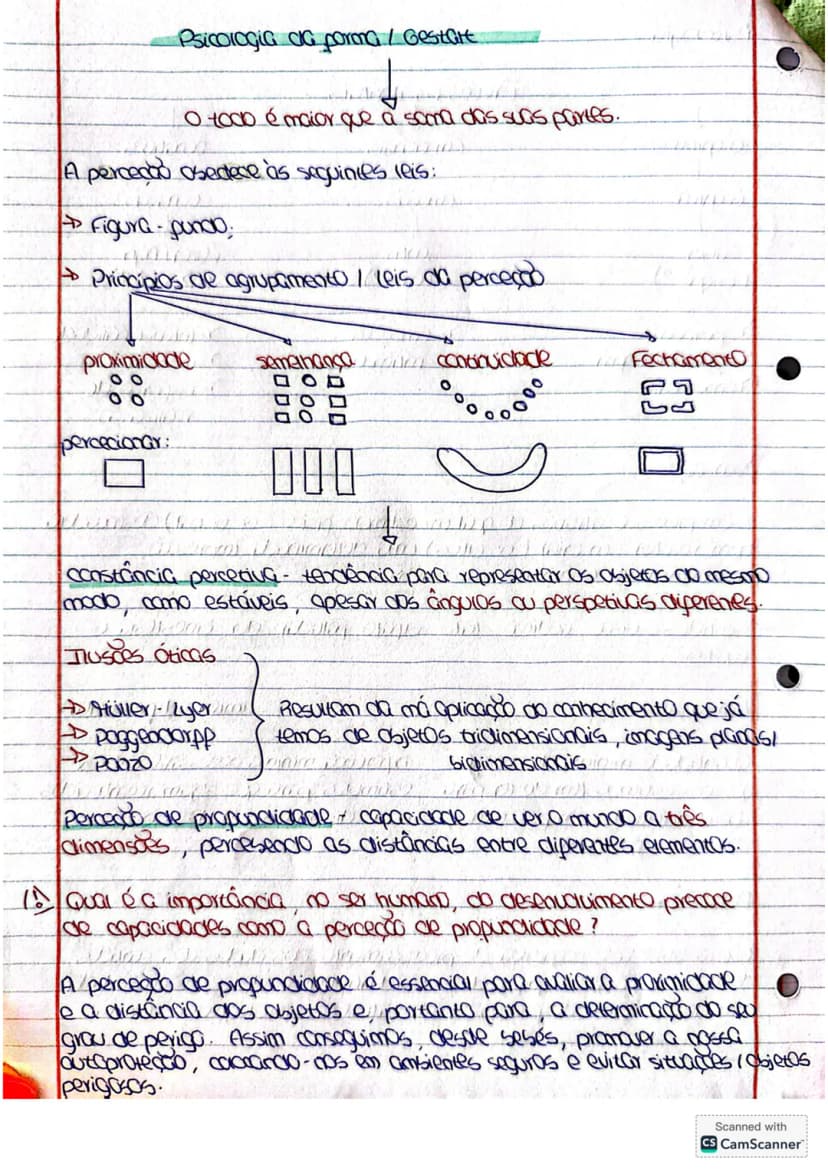 Psicologia da forma / Gestalt
O todo é maior que a soma das suas partes.
A perceção obedece às seguintes leis:
→ Figura - fundo;
→ Princípios de agrupamento / leis da perceção
proximidade semelhança continuidade Fechamento
percecionar:
constância percetiva - tendência para representar os objetos do mesmo
modo, como estáveis, apesar dos ângulos ou perspetivas diferenes.
Ilusões Óticas
→ Müller - Lyer
→ Poggendorff
→ Ponzo
Resultam da má aplicação do conhecimento que já
temos de objetos tridimensionais, imagens planas/
bidimensionais
Perceção de profundidade - capacidade de ver o mundo a três
dimensões, percebendo as distâncias entre diferentes elementos.
Qual é a importância, no ser humano, do desenvolvimento precoce
de capacidades como a perceção de profundidade?
A perceção de profundidade é essencial para avaliar a proximidade
e a distância dos objetos e, portanto para, a determinação do seu
grau de perigo. Assim conseguimos, desde bebés, promover a nossa
autoproteção, colocando-nos em ambientes seguros e evitar situações / objetos
perigosos.
Scanned with
CS CamScanner